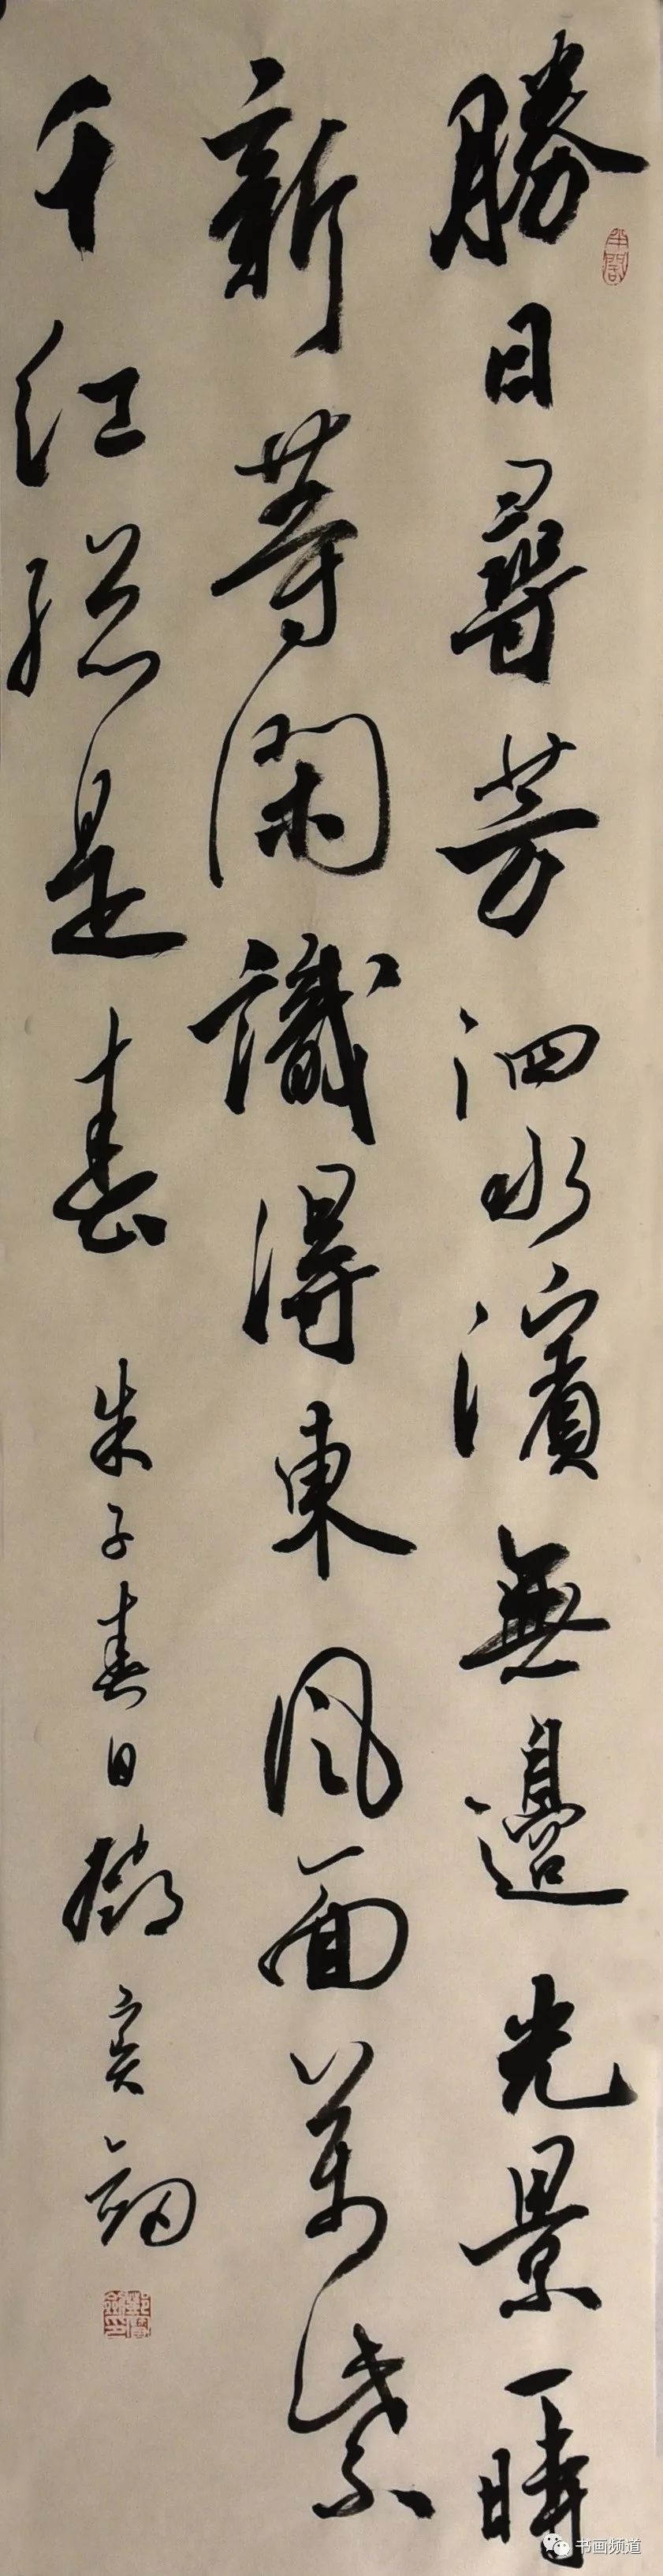 勝日尋芳泗水濱無邊光景一時
新等閑識得東風面萬紫
千紅總是春
朱子春日鄧寶劍
书画频道